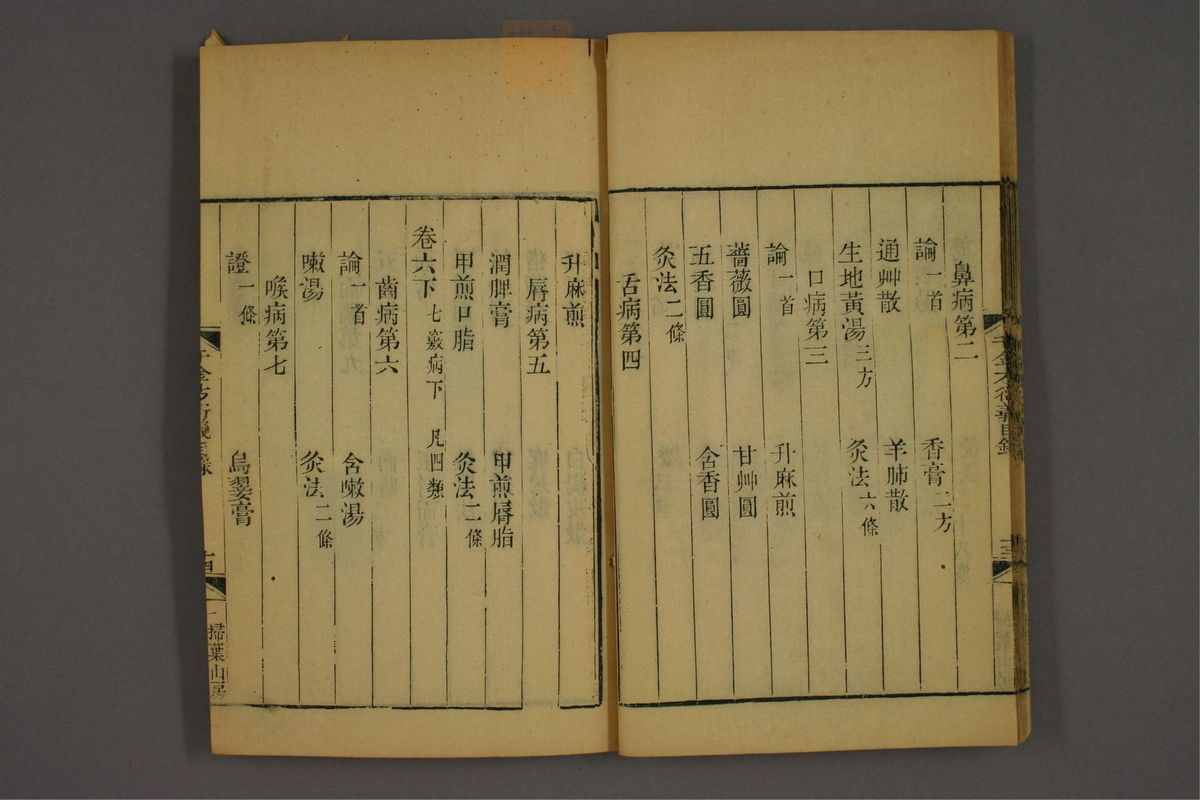 鼻病第二
論一首 香膏二方
通艸散 羊肺散
生地黃湯三方 灸法六條
口病第三
論一首 升麻煎
薔薇圓 甘艸圓
五香圓 含香圓
灸法二條
舌病第四
千金方衍義目錄 十三
升麻煎
脣病第五
潤脾膏 甲煎脣脂
甲煎口脂 灸法二條
卷六下 七竅病下 凡四類
齒病第六
論一首 含嗽湯
嗽湯 灸法二條
喉病第七
證一條 烏翣膏
千金方衍義目錄 十四 掃葉山房